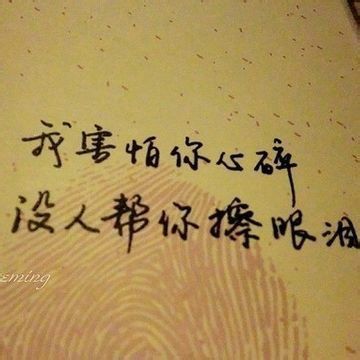 我害怕你心碎
没人帮你擦眼泪
eming